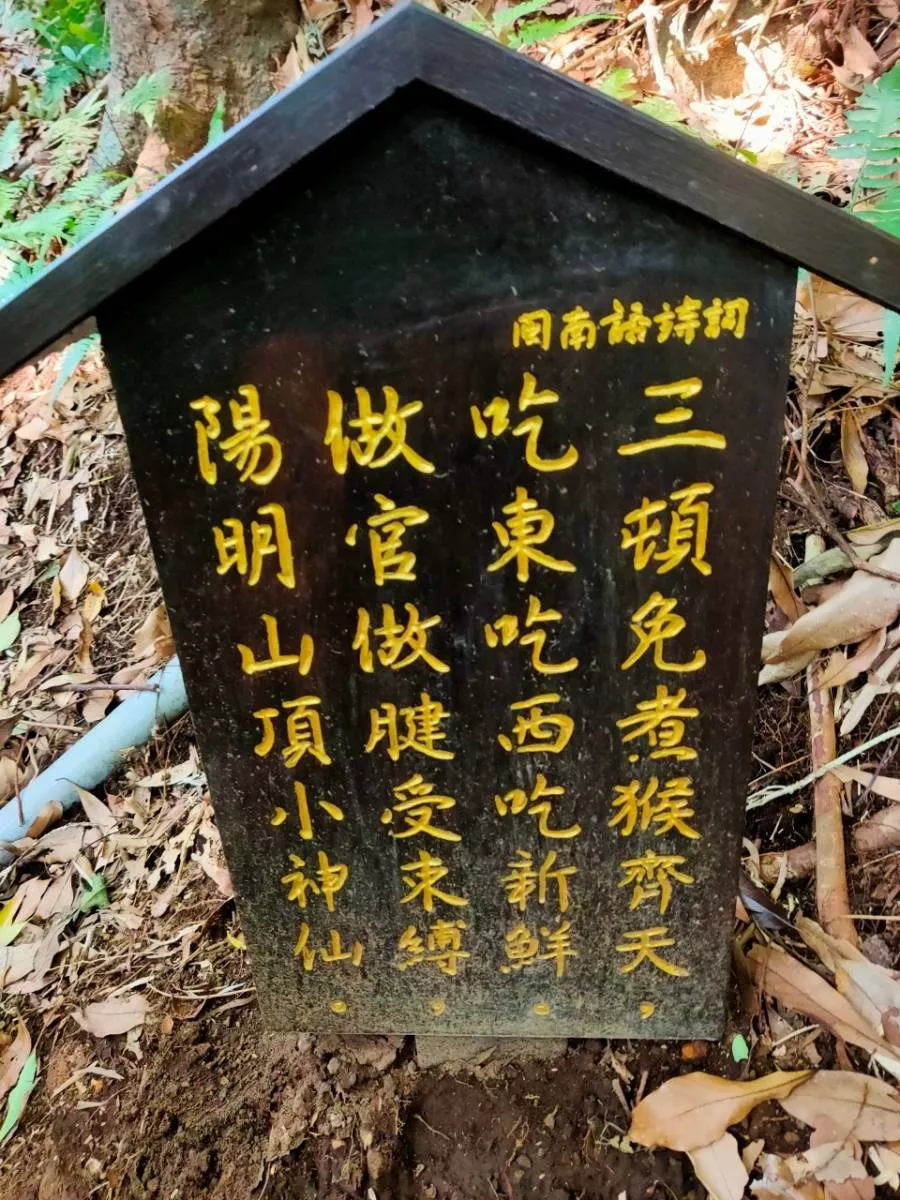 閩南語詩詞
三頓免煮猴齊天,
吃東吃西吃新鮮。
做官做腱受束縛,
陽明山頂小神仙。